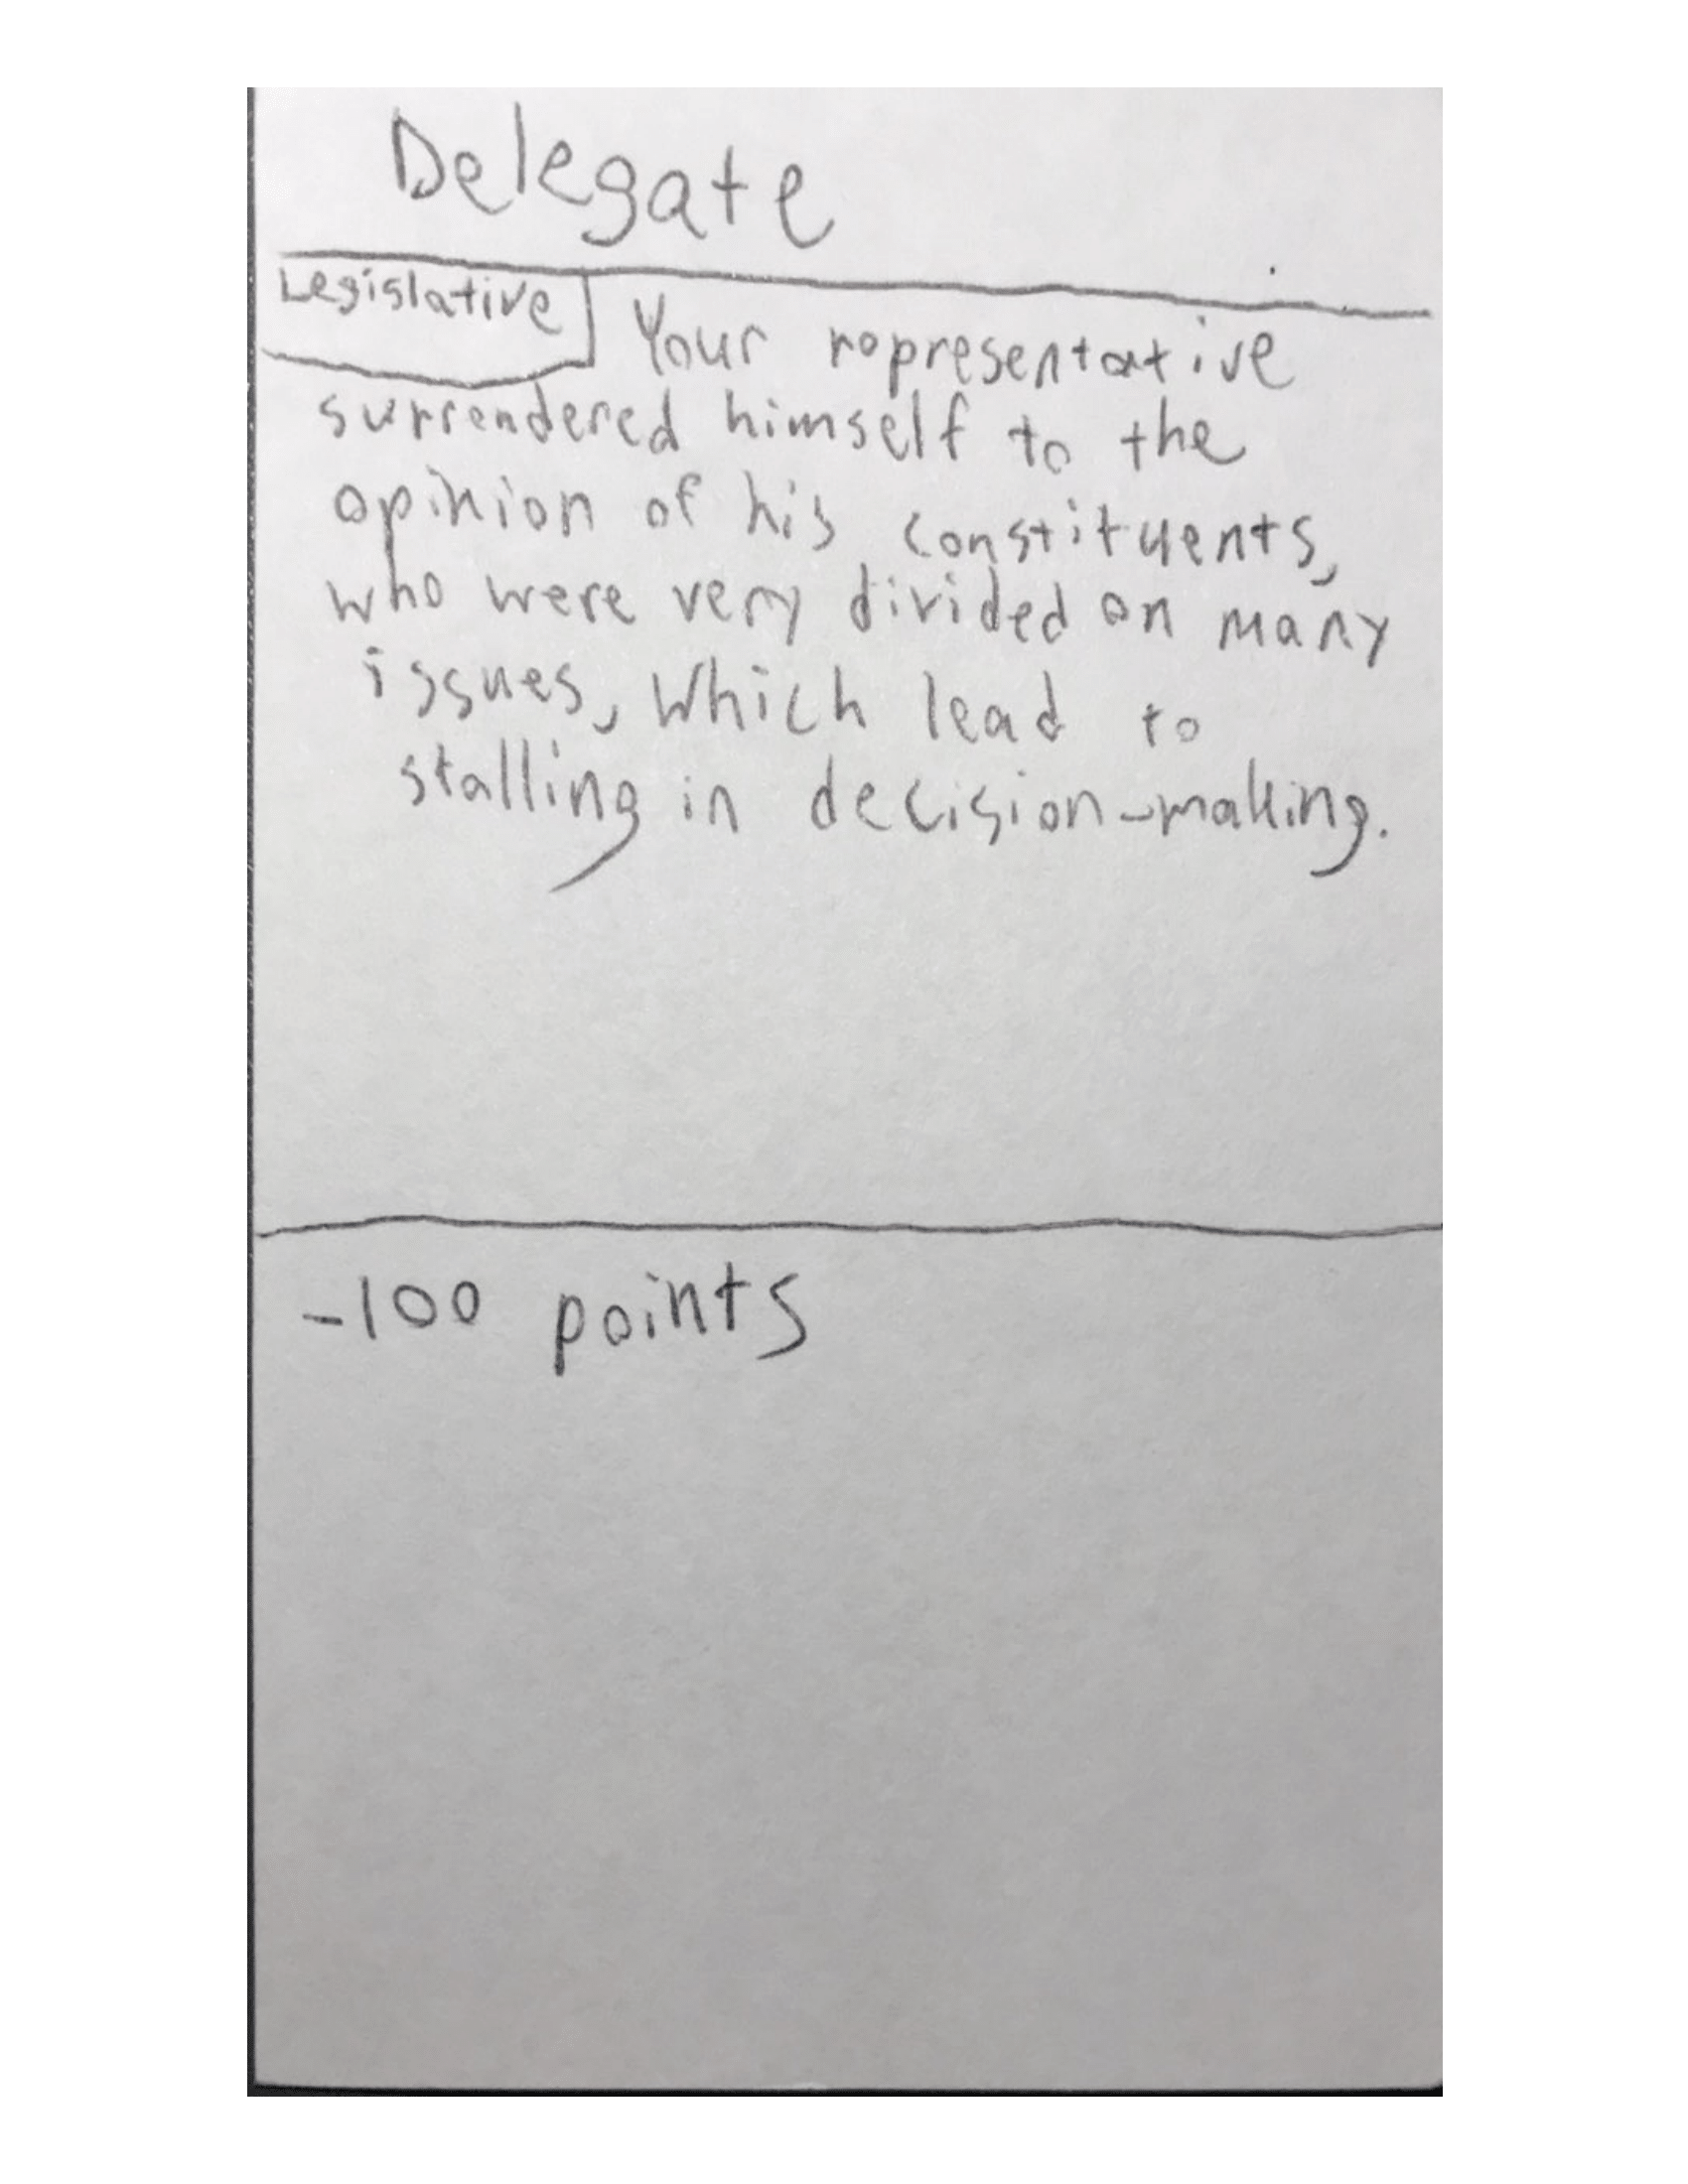 Delegate
Legislative
Your representative
surrendered himself to the
opinion of his constituents,
who were very divided on many
issues, Which lead to
stalling in decision-making.
-100 points